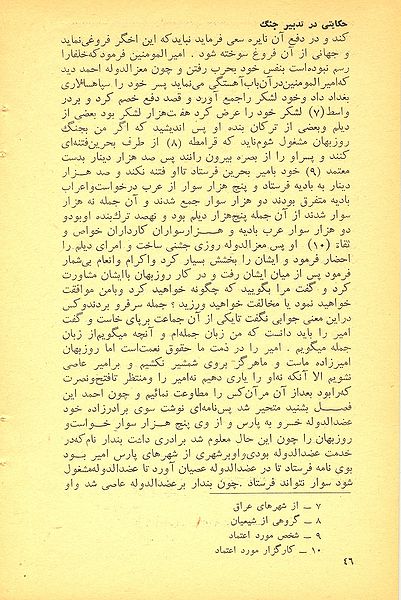 حکایتی در تدبیر جنگ
کند و در دفع آن نایره سعی فرماید نبایدکه این اخگر فروغی‌نماید
و جهانی از آن فروغ سوخته شود . امیرالمومنین فرمودکه‌خلفارا
رسم نبوده‌است بنفس خود بحرب رفتن و چون معزالدوله احمد دید
که‌امیرالمومنین‌درآن‌باب‌آهستگی می‌نماید پسر خود را سپاهسالاری
بغداد داد وخود لشکر راجمع آورد و قصد دفع خصم کرد و بردر
واسط(۷) لشکر خود را عرض کرد هفت‌هزار لشکر بود بعضی از
دیلم وبعضی از ترکان بنده او پس اندیشید که اگر من بجنگ
روزبهان مشغول شوم‌نباید که قرامطه (۸) از طرف بحرین‌فتنه‌ای
کنند و پسراو را از بصره بیرون رانند پس صد هزار دینار بدست
معتمد (۹) خود بامیر بحرین فرستاد تااو فتنه نکند و صد هزار
دینار به بادیه فرستاد و پنج هزار سوار از عرب درخواست‌واعراب
بادیه متفرق بودند دو هزار سوار جمع شدند و آن جمله نه هزار
سوار شدند از آن جمله پنج‌هزار دیلم بود و نهصد ترك‌بنده اوبودو
دو هزار سوار عرب بادیه و هزارسواران کارداران خواص و
ثقاة (۱۰) او پس معزالدوله روزی جشنی ساخت و امرای دیلم را
احضار فرمود و ایشان را بخشش بسیار کرد واکرام وانعام بی‌شمار
فرمود پس از میان ایشان رفت و در کار روزبهان باایشان مشاورت
کرد و گفت مرا بگویید که چگونه خواهید کرد وبامن موافقت
خواهید نمود یا مخالفت خواهید ورزید ؟ جمله سرفرو بردندوکس
دراین معنی جوابی نگفت تایکی از آن جماعت برپای خاست و گفت
امیر را باید دانست که من زبان جمله‌ام و آنچه میگویم‌از زبان
جمله میگویم . امیر را در ذمت ما حقوق نعمت‌است اما روزبهان
امیرزاده ماست و ماهرگز بروی شمشیر نکشیم و برامیر عاصی
نشویم الا آنکه نه‌او را یاری دهیم نه‌امیر را ومنتظر تافتح‌ونصرت
که‌رابود بعداز آن مرآن‌کس را مطاوعت نمائیم و چون احمد این
فصل بشنید متحیر شد پس‌نامه‌ای نوشت سوی برادرزاده خود
عضدالدوله خسرو به پارس و از وی پنج هزار سوار خواست‌و
روزبهان را چون این حال معلوم شد برادری داشت بندار نام‌که‌در
خدمت عضدالدوله بودی‌واوبرشهری از شهرهای پارس امیر بود
بوی نامه فرستاد تا در عضدالدوله عصیان آورد تا عضدالدوله‌مشغول
شود سوار نتواند فرستاد . چون بندار برعضدالدوله عاصی شد واو
۷ ــ از شهرهای عراق
۸ ــ گروهی از شیعیان
۹ ــ شخص مورد اعتماد
۱۰ ــ کارگزار مورد اعتماد
٤٦